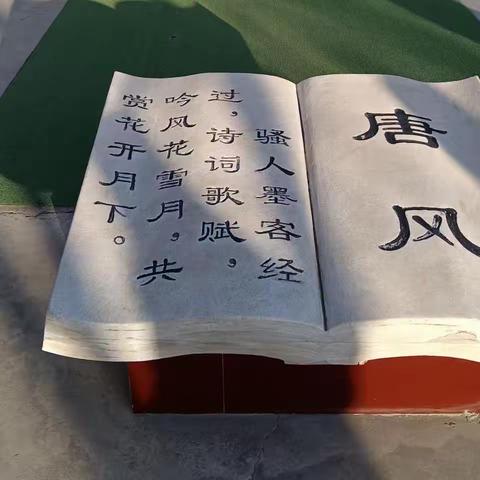 唐风
骚人墨客经
过，诗词歌赋，
吟风花雪月，共
赏花开月下。